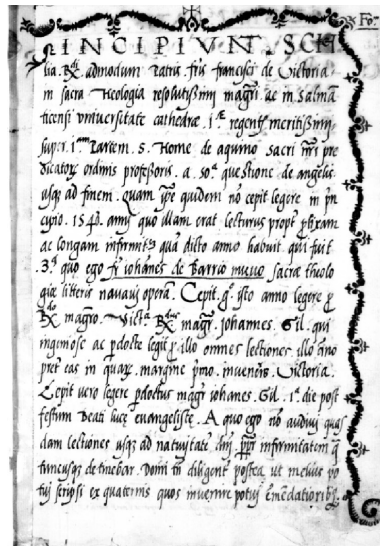 Fo.
INCIPIVNT SCH
lia. Rdi. admodum Patris fris francisci de Victoria.
in sacra Theologia resolutissimj magrj. ac in Salmã
ticensi vniuersitate cathedræ .1.ę regentis meritissimj
super .1.am Partem. S. Thome de aquino sacri nrj prę
dicatorũ ordinis professoris. a .50.a questione de angelis
usq3 ad finem. quam ipse quidem nõ cepit legere in prĩ
cipio .1540. annj quo illam erat lecturus propter
ac longam infirmitatẽ quã dicto anno habuit. qui fuit
3.us quo ego fr iohãnes de Barrio nueuo sacræ theolo
giæ litteris nauauj operã. Cepit .g.o isto anno legere
Rdo. magro. Vict.a Rdus magr. johannes. Gil. qui
ingeniose ac docte legit illo omnes lectiones. illo año
preter eas in margine inuenies. Victoria.
Cepit vero legere doctus magr iohanes. Gil. 1.a die post
festum Beati lucę euangelistę. A quo ego nõ audiuj quas
dam lectiones usq3 ad natiuitatẽ dnj. infirmitatem
tuncusq3 detinebar. Donec in diligent postea ut melius po
tuj scripsi ex quaternis quos inuenire potuj emẽdatiorib3